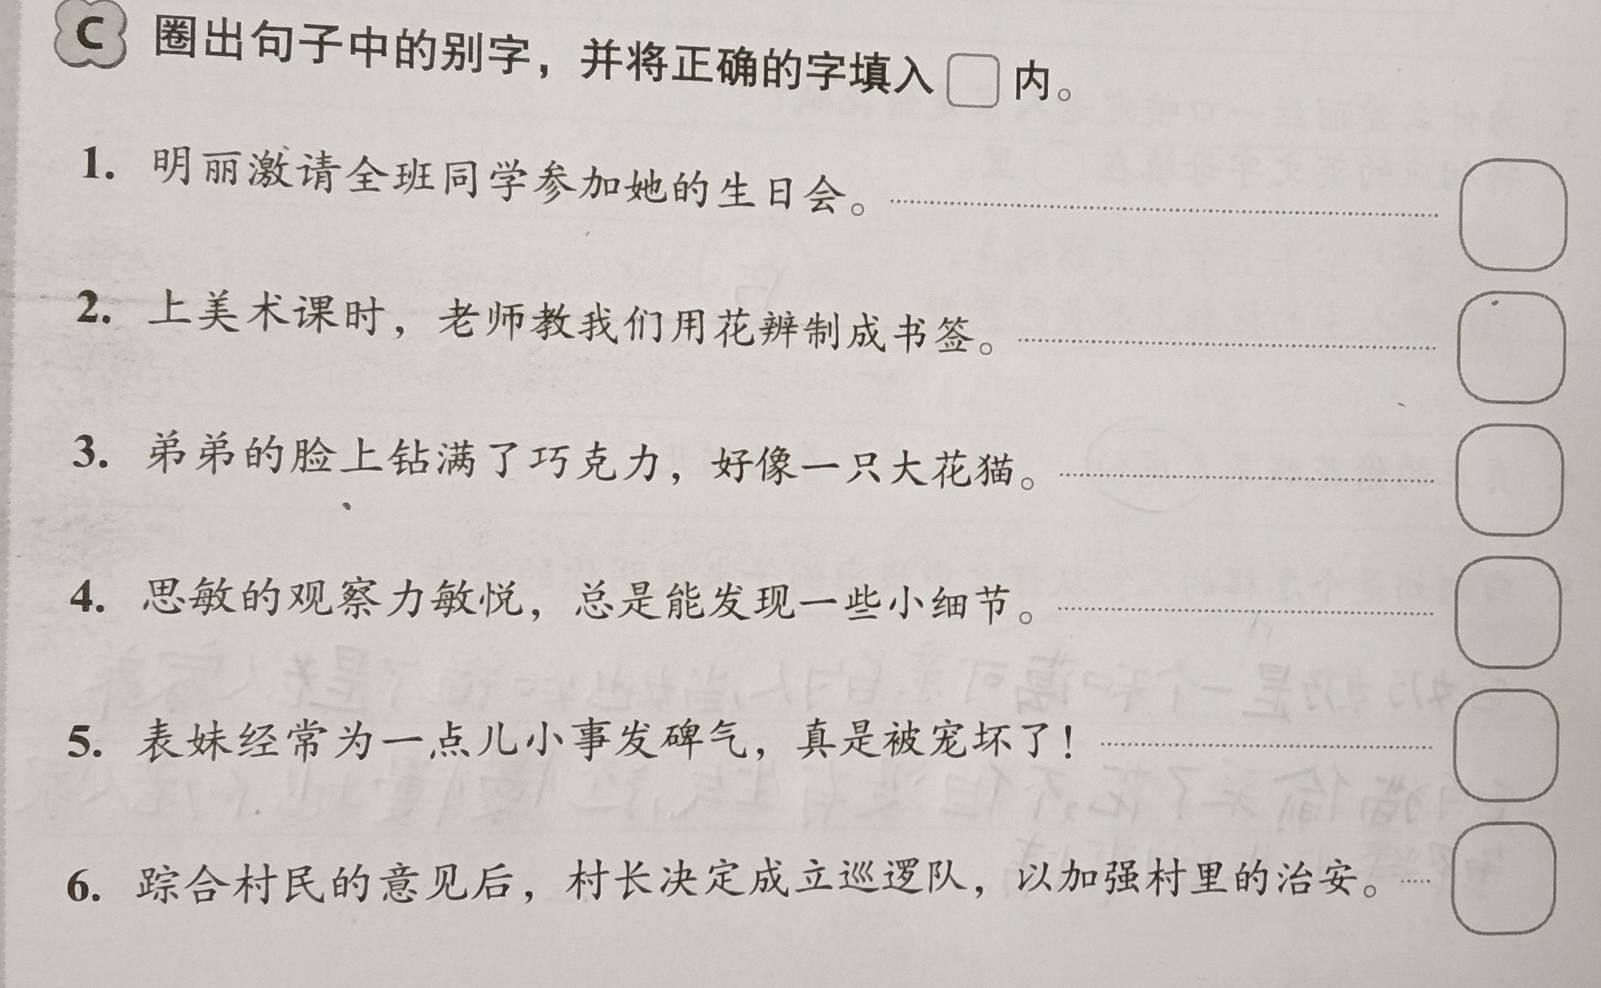 C 圈出句子中的别字，并将正确的字填入□内。
1. 明丽激请全班同学参加她的生日会。
2. 上美术课时，老师教我们用花辨制成书签。
3. 弟弟的脸上钻满了巧克力，好像一只大花猫。
4. 思敏的观察力敏悦，总是能发现一些小细节。
5. 表妹经常为一点儿小事发碑气，真是被宠坏了！
6. 踪合村民的意见后，村长决定成立巡逻队，以加强村里的治安。